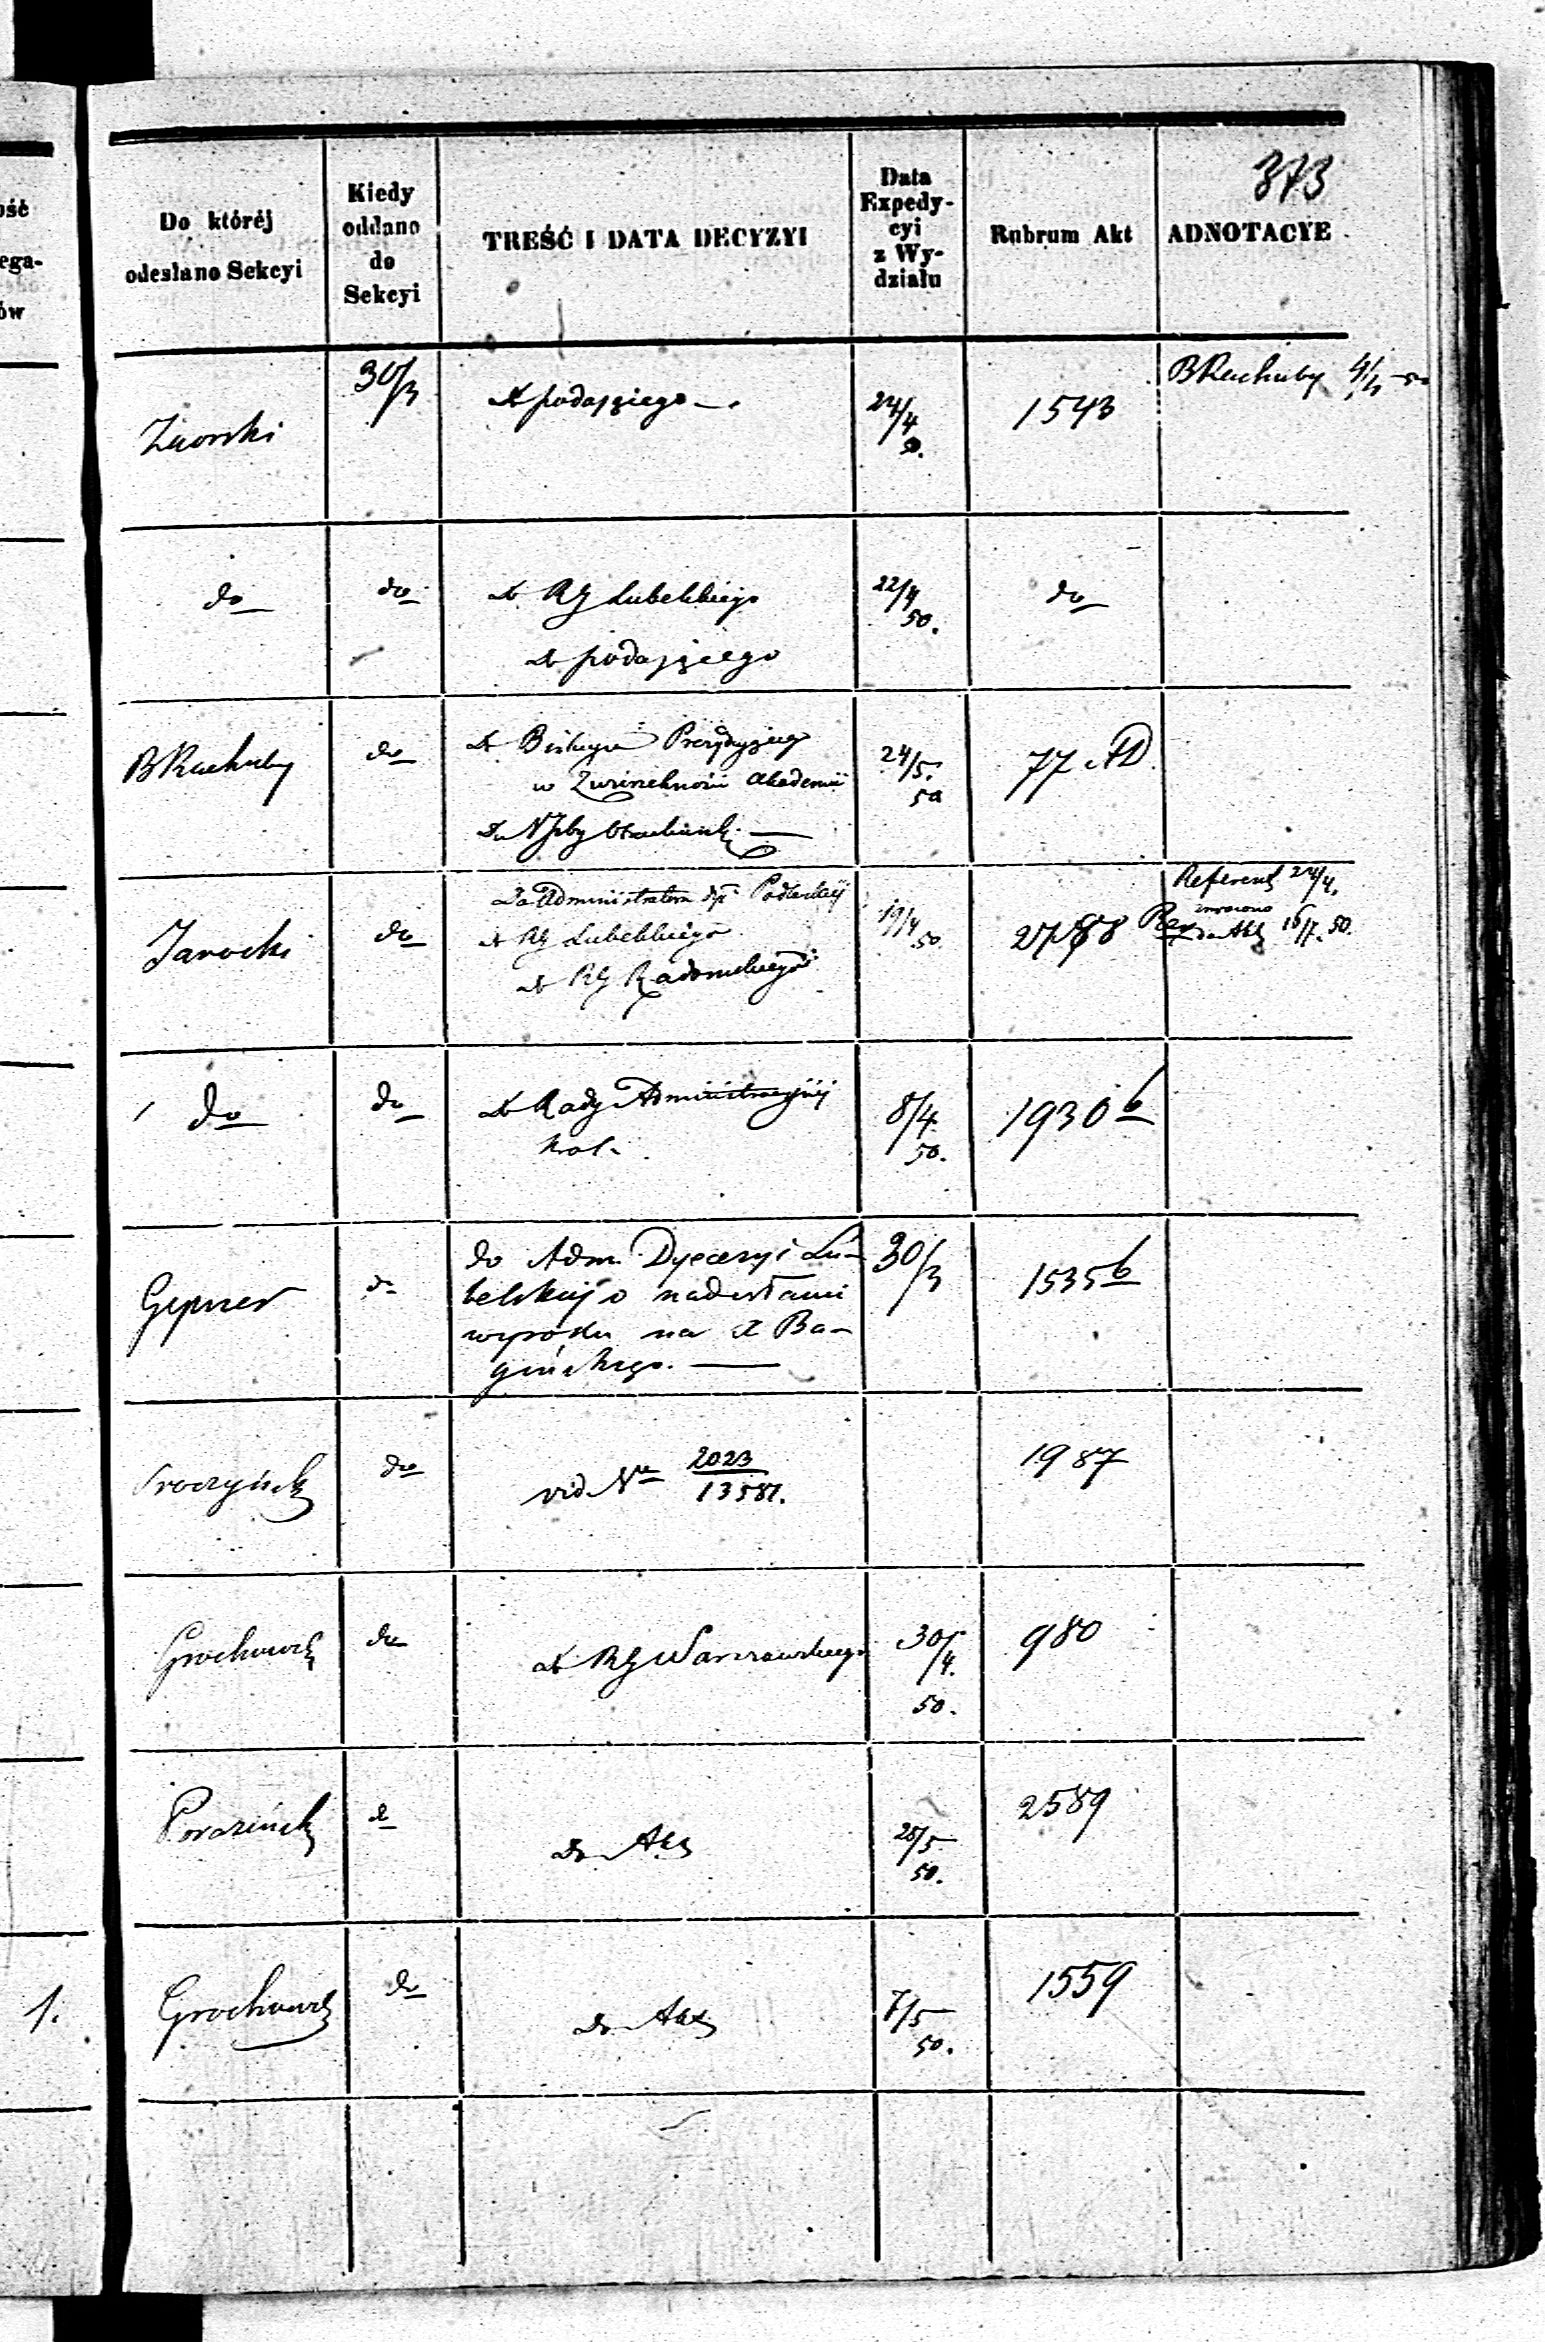 373
Do któréj
odesłano Sekcyi
Kiedy
oddano
do
Sekcyi
TREŚĆ I DATA DECYZYI
Data
Expedy-
cyi
z Wy-
działu
Rubrum Akt
ADNOTACYE
30/3
do podającego
24/4
50.
1543
B Rachuby
do
do
do RG Lubelskiego
do podającego
22/4
50.
do
B Rachuby
do
do Biskupa
w Zwierzchności Akademii
do N Izby Obrachunk.
24/5.
50
77 AD.
Jarocki
do
Do Administratora Dyi Podlaskiej
do RG Lubelskiego
do RG Radomskiego
19/4
50.
2788
Referent 24/4.
zwrócono
do Akt 16/7. 50.
do
do
do Rady Administracyjnej
Król.
8/4.
50.
1930 b
do
do Adm. Dyecezyi Lu-
belskiej o nadesłanie
wyroku na X Ba-
gińskiego.
30/3
1535 b
do
vid. No 2023/13581.
1987
Grochowski
do
do RG Warszawskiego
30/4.
50.
980
do
do Akt
28/5
50.
2589
1.
Grochowski
do
do Akt
7/5
50.
1559